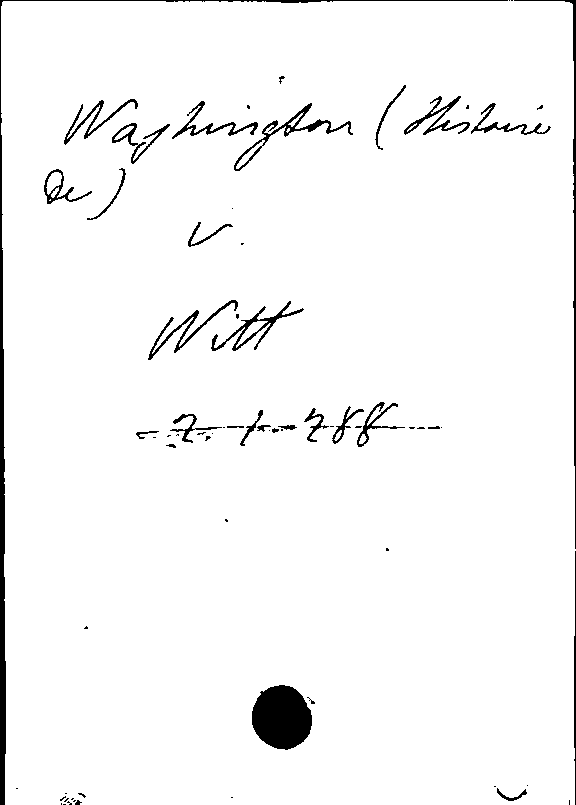 Washington (Histoire
de)
V.
Witt
Z. 1. 288